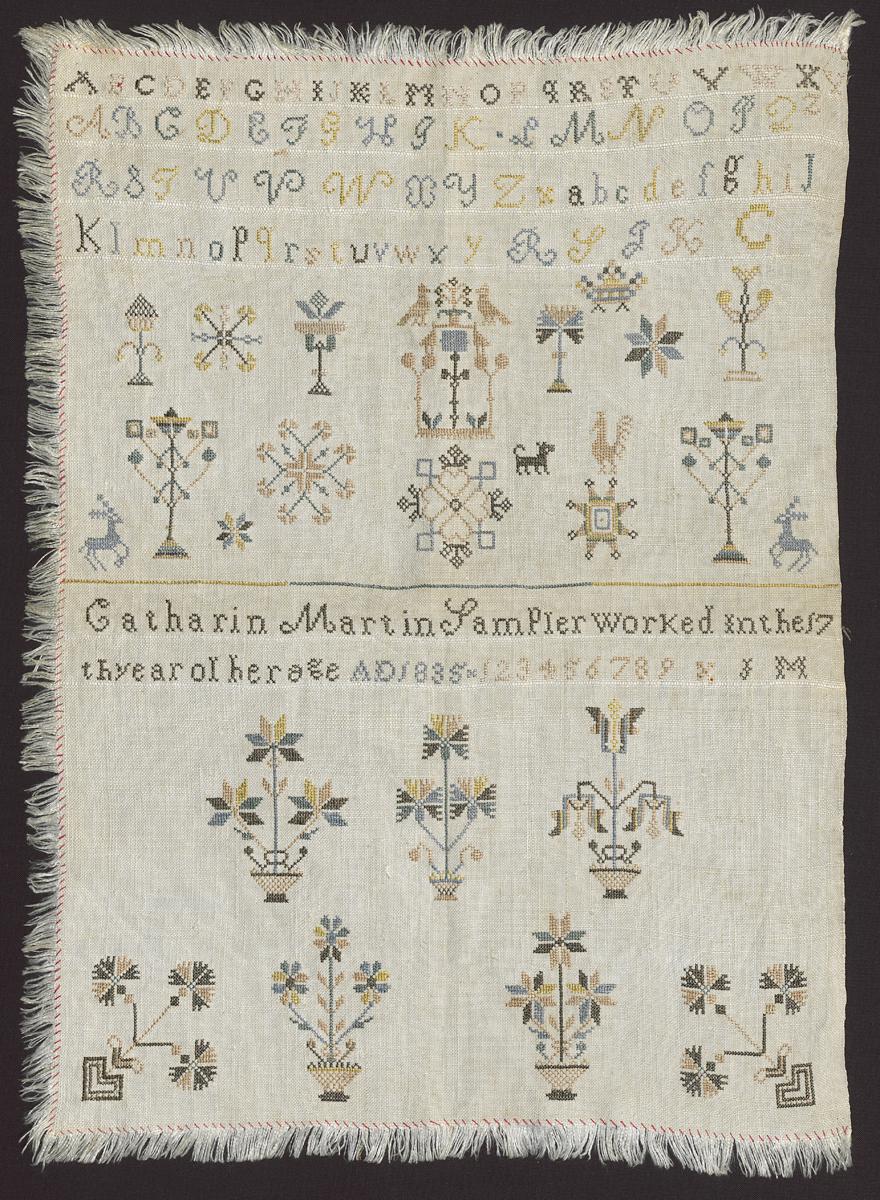 A B C D E F G H I J K L M N O P q R S T U V W X Y
A B C D E F G H I K · L M N O P Q 2
R S T U V W X Y Z x a b c d e f g h i J
K l m n o p q r s t u v w x y R S I K C
Catharin Martin SamPler worKed inthe 17
thyear of her age AD 1835 x 1 2 3 4 5 6 7 8 9 x I M